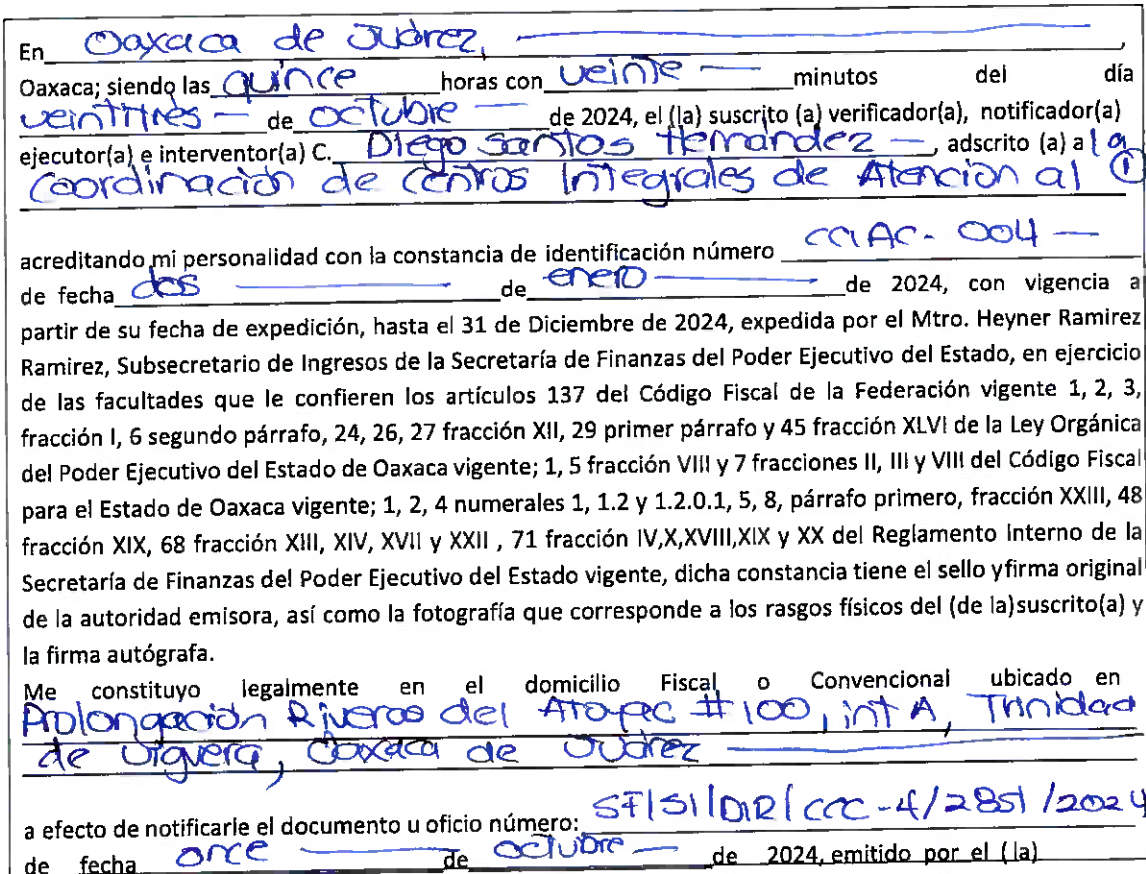 En Oaxaca de Juárez, ,
Oaxaca; siendo las quince horas con veinte minutos del día
veintitres de octubre de 2024, el (la) suscrito (a) verificador(a), notificador(a)
ejecutor(a) e interventor(a) C. Diego Santos Hernández , adscrito (a) a la
Coordinación de Centros Integrales de Atención al ①
acreditando mi personalidad con la constancia de identificación número CCIAC- 004
de fecha dos de enero de 2024, con vigencia a
partir de su fecha de expedición, hasta el 31 de Diciembre de 2024, expedida por el Mtro. Heyner Ramirez
Ramirez, Subsecretario de Ingresos de la Secretaría de Finanzas del Poder Ejecutivo del Estado, en ejercicio
de las facultades que le confieren los artículos 137 del Código Fiscal de la Federación vigente 1, 2, 3,
fracción I, 6 segundo párrafo, 24, 26, 27 fracción XII, 29 primer párrafo y 45 fracción XLVI de la Ley Orgánica
del Poder Ejecutivo del Estado de Oaxaca vigente; 1, 5 fracción VIII y 7 fracciones II, III y VIII del Código Fiscal
para el Estado de Oaxaca vigente; 1, 2, 4 numerales 1, 1.2 y 1.2.0.1, 5, 8, párrafo primero, fracción XXIII, 48
fracción XIX, 68 fracción XIII, XIV, XVII y XXII , 71 fracción IV,X,XVIII,XIX y XX del Reglamento Interno de la
Secretaría de Finanzas del Poder Ejecutivo del Estado vigente, dicha constancia tiene el sello yfirma original
de la autoridad emisora, así como la fotografía que corresponde a los rasgos físicos del (de la)suscrito(a) y
la firma autógrafa.
Me constituyo legalmente en el domicilio Fiscal o Convencional ubicado en
Prolongación Riveras del Atoyac #100, int A, Trinidad
de Viguera, Oaxaca de Juárez
a efecto de notificarle el documento u oficio número: SF/SI/DIR/CCC-4/2851/2024
de fecha once de octubre de 2024, emitido por el (la)